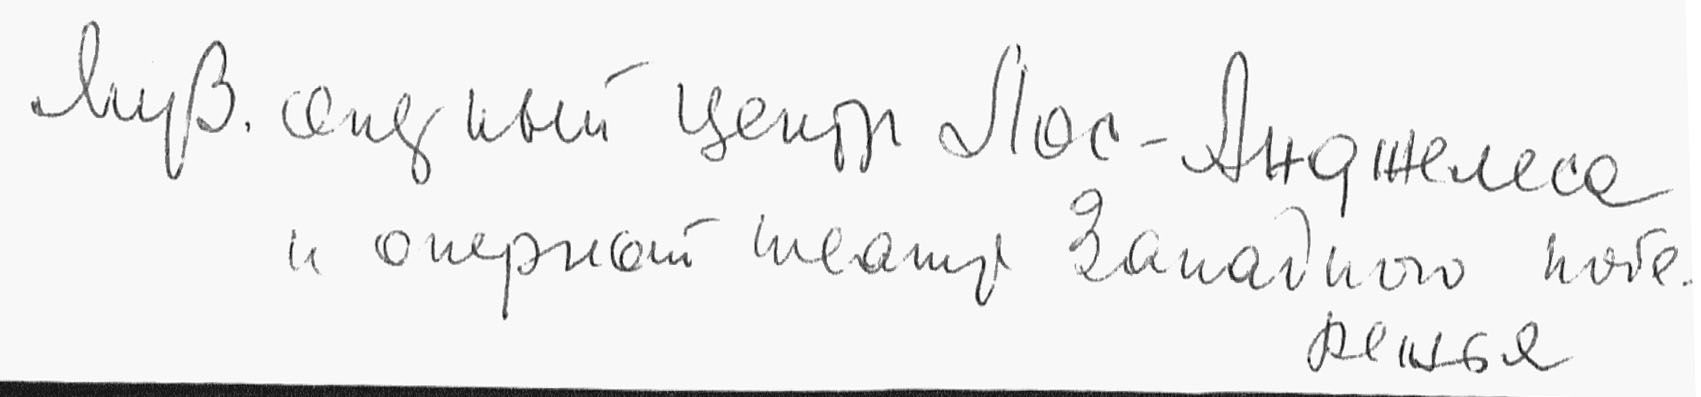 центр Лос-Анджелеса
и оперный театр Западного побе-
режья